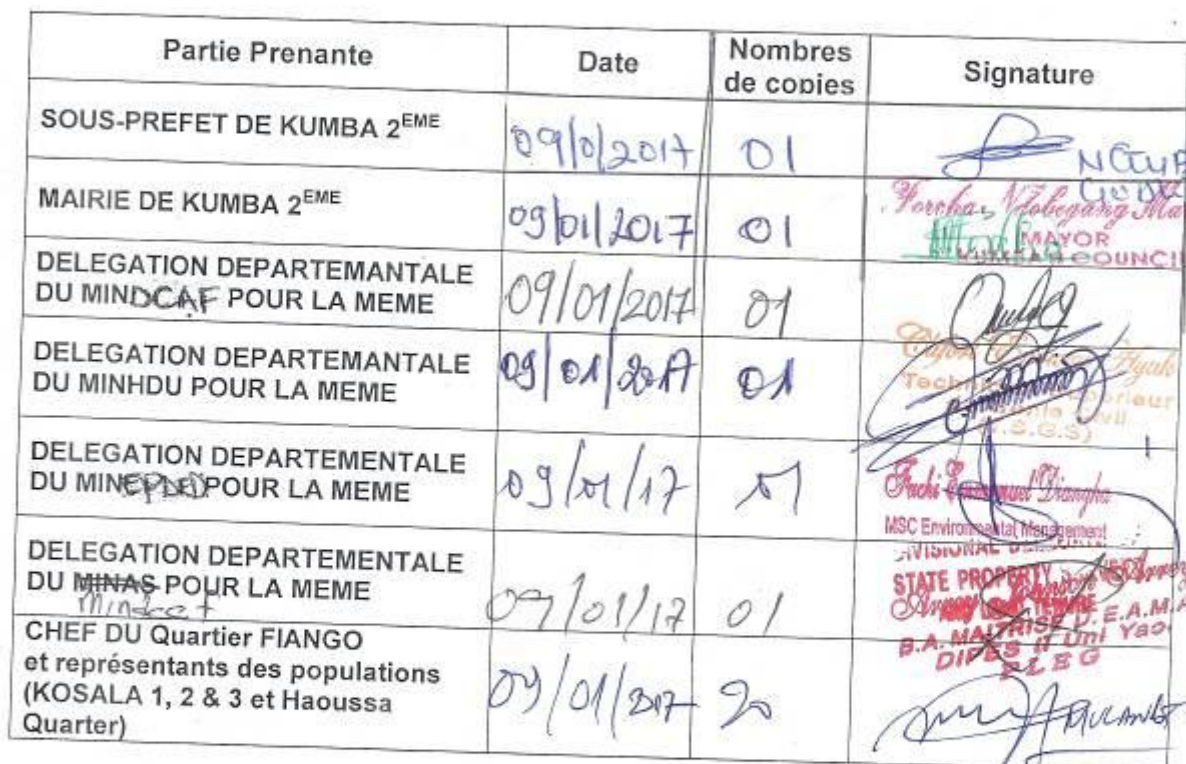 Partie Prenante Date Nombres de copies Signature
SOUS-PREFET DE KUMBA 2EME 09/0/2017 01
MAIRIE DE KUMBA 2EME 09/01/2017 01
MAYOR
COUNCIL
DELEGATION DEPARTEMANTALE
DU MINDCAF POUR LA MEME 09/01/2017 01
DELEGATION DEPARTEMANTALE
DU MINHDU POUR LA MEME 09/01/2017 01
DELEGATION DEPARTEMENTALE
DU MINEPDED POUR LA MEME 09/01/17 01
MSC Environmental Management
DELEGATION DEPARTEMENTALE
DU MINAS POUR LA MEME 09/01/17 01
STATE PROPERTY
B.A. MAITRISE D.E.A.M.A
DIPES II Uni Yao.
PLEG
CHEF DU Quartier FIANGO
et représentants des populations
(KOSALA 1, 2 & 3 et Haoussa
Quarter) 09/01/2017 20